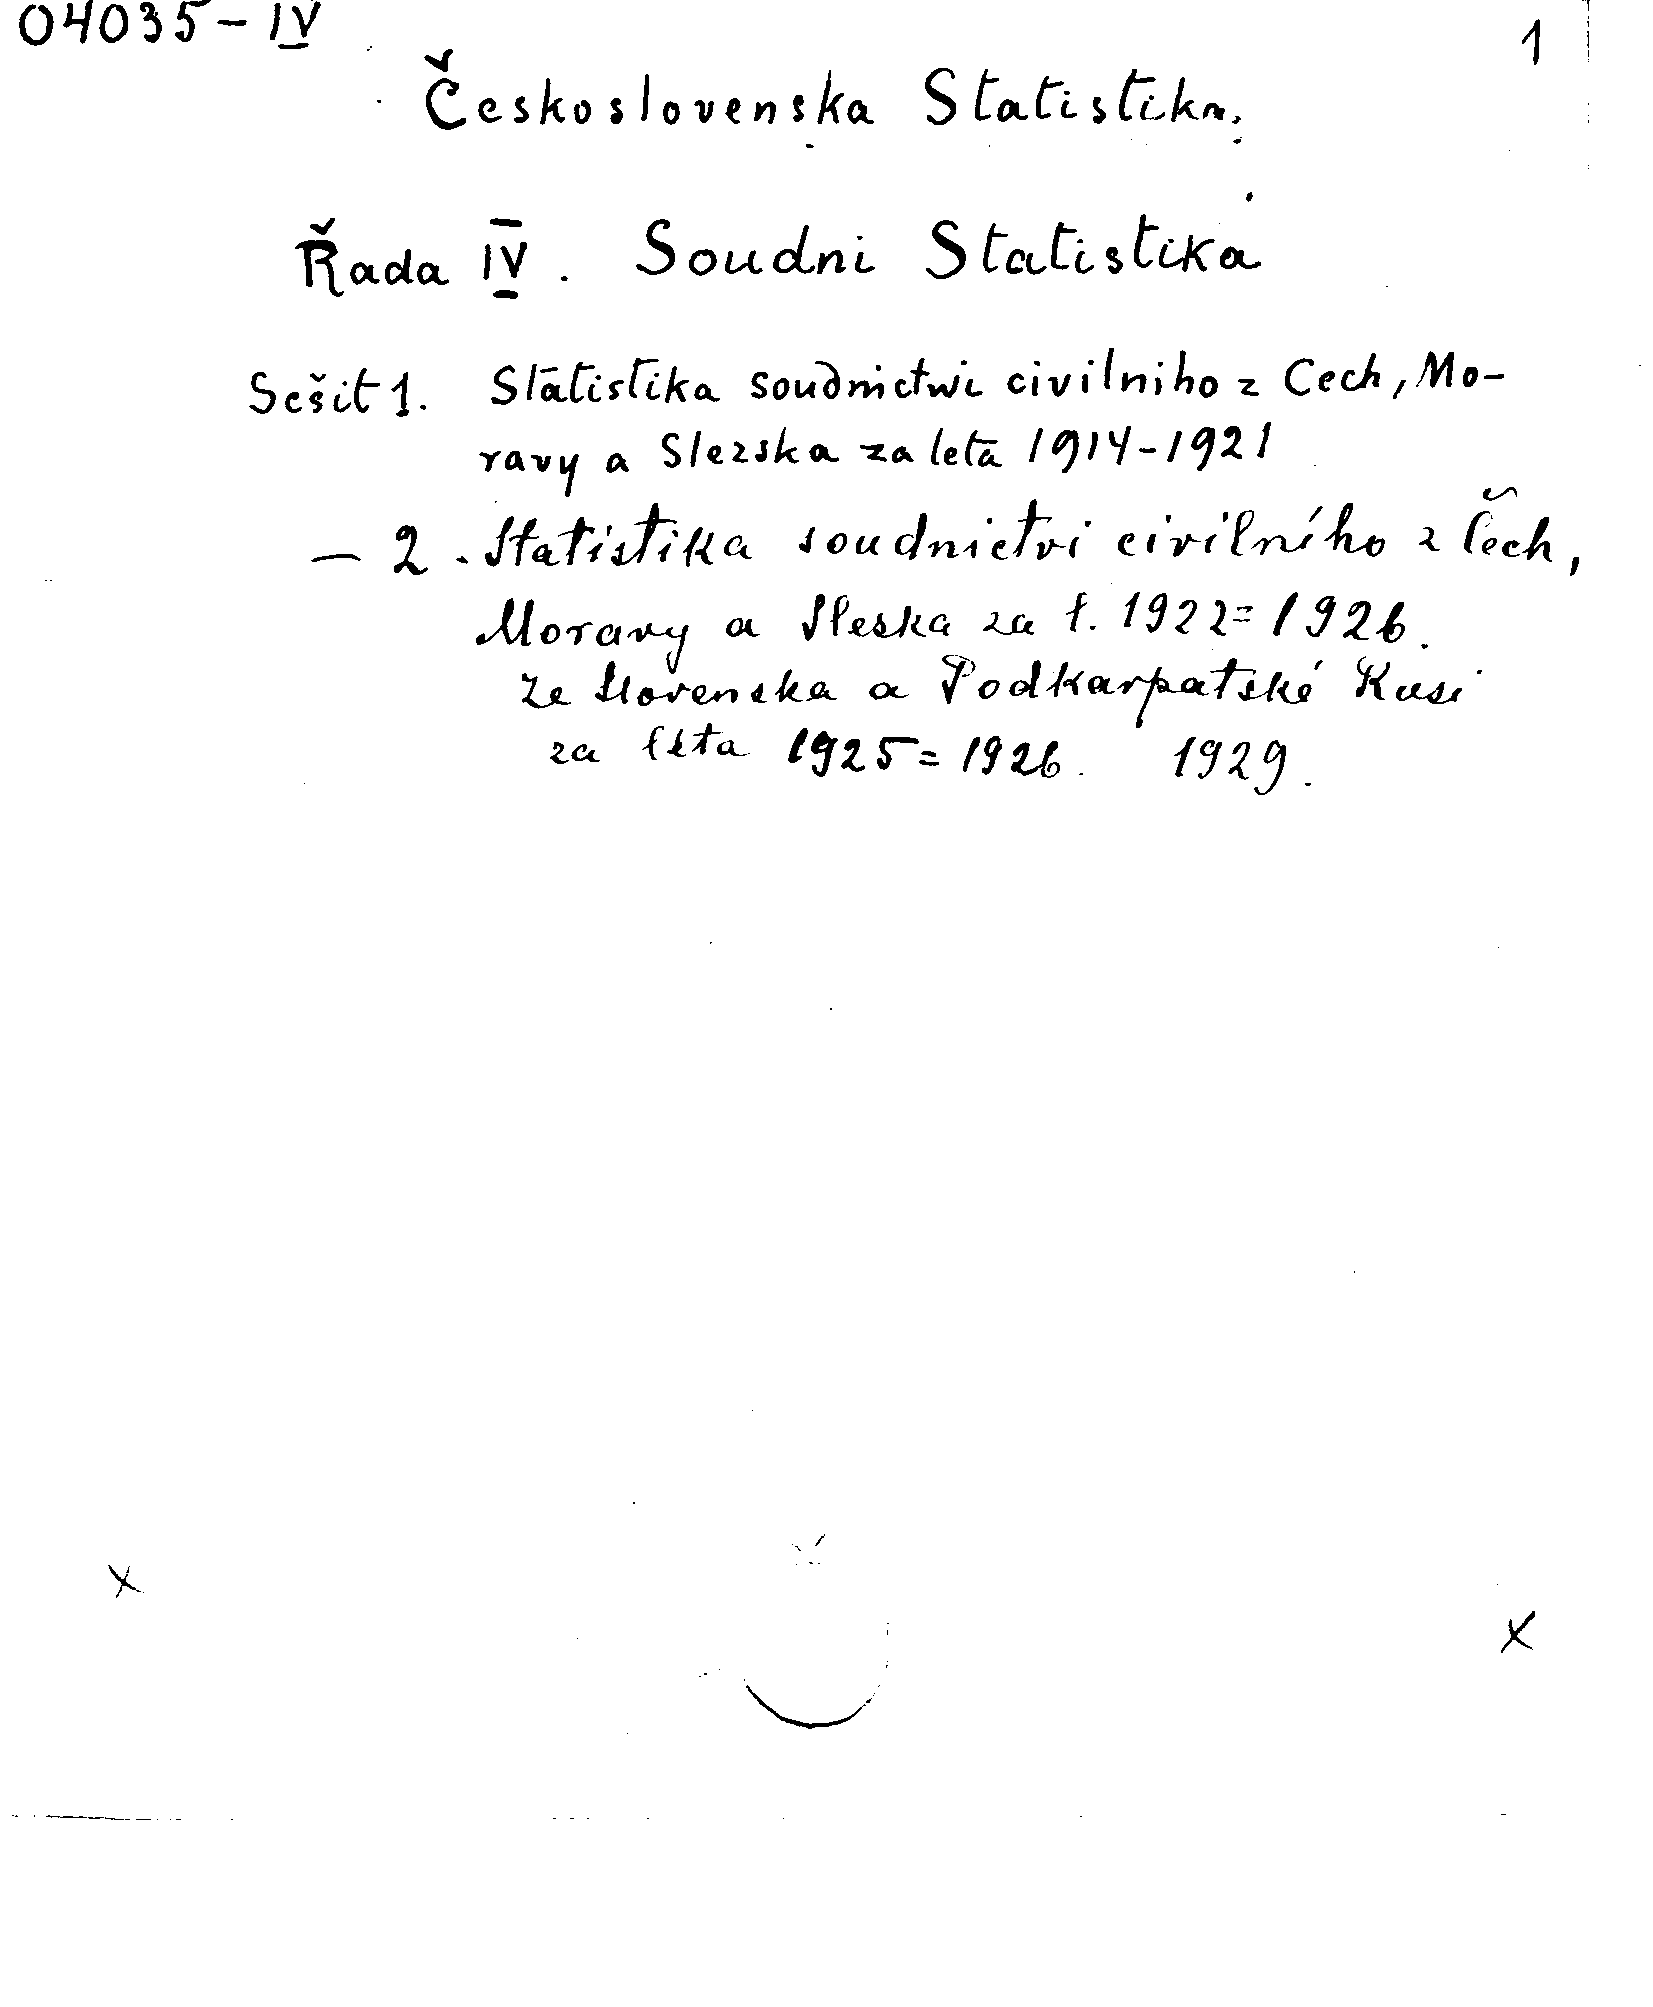 04035-IV
1
Československa Statistika.
Řada IV. Soudni Statistika
Sešit 1. Statistika soudnictwi civilniho z Cech, Mo-
ravy a Slezska za leta 1914-1921
— 2. Statistika soudnictvi civilního z Čech,
Moravy a Sleska za l. 1922=1926.
ze Slovenska a Podkarpatské Rusi
za léta 1925=1926. 1929.
x
x